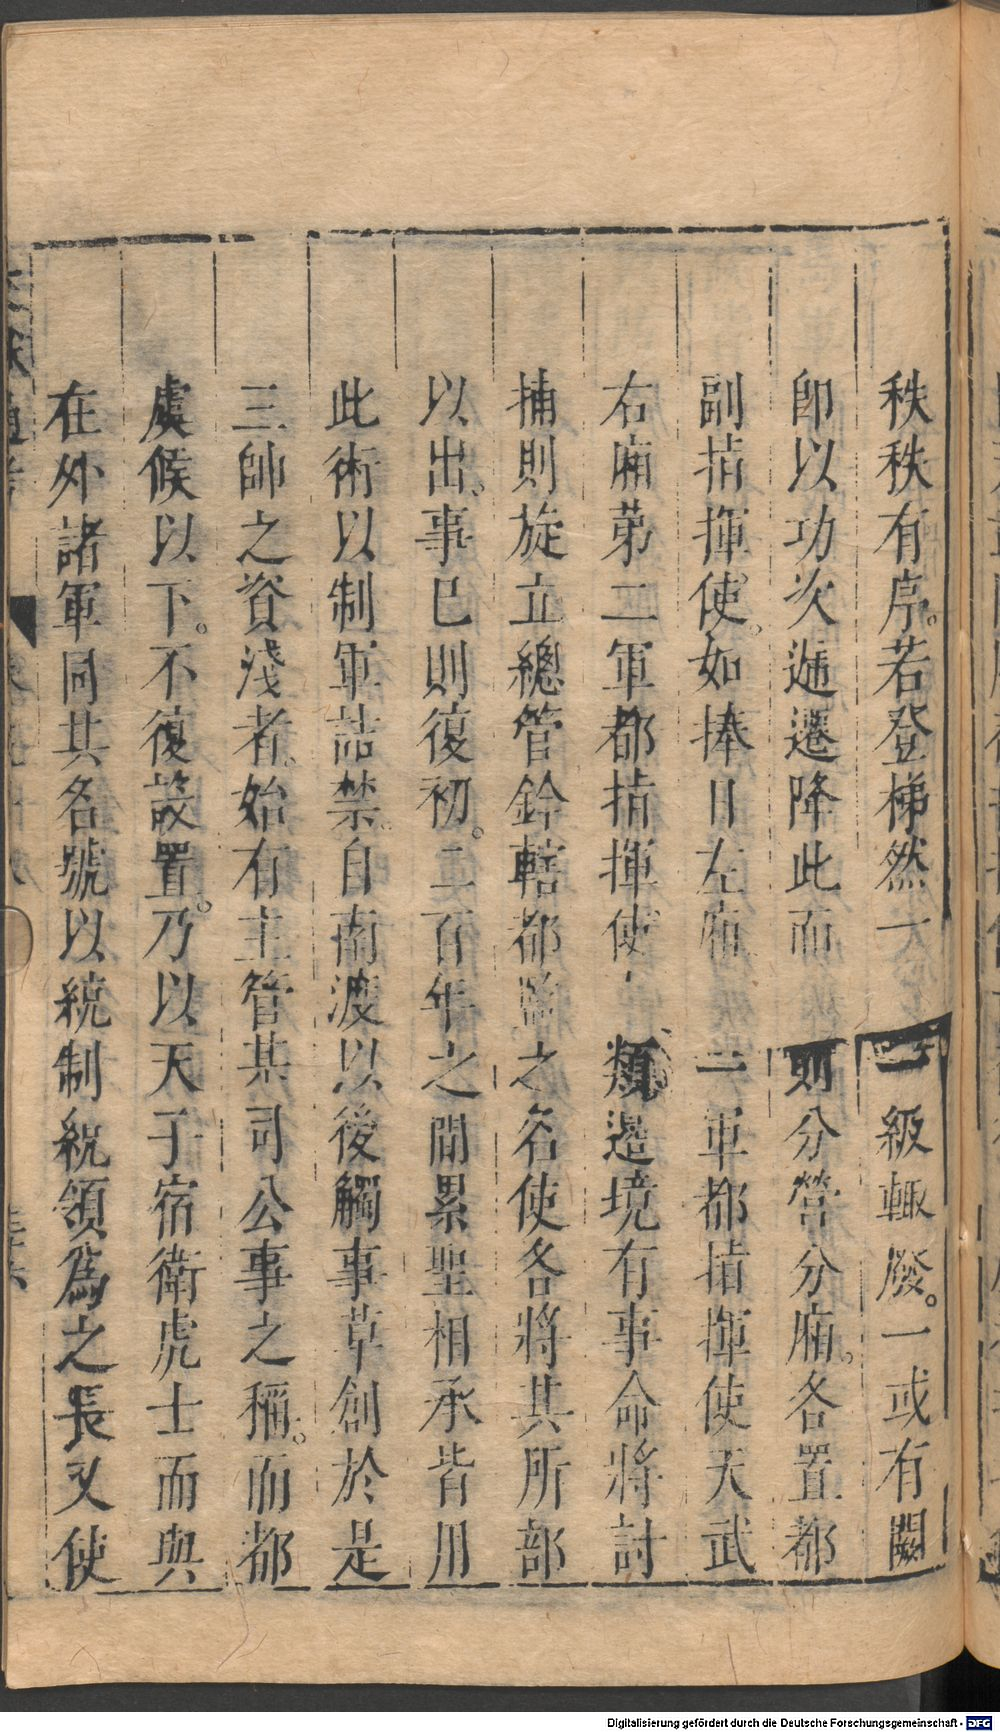 秩秩有序。若登梯然一級輒廢。一或有闕
即以功次遞遷降此而則分營分廂。各置都
副指揮使。如捧日左廂二軍都指揮使天武
右廂第二軍都指揮使類邊境有事命將討
捕則旋立總管鈐轄都監之名使各將其所部
以出。事已則復初。二百年之間累聖相承皆用
此術以制軍詰禁。自南渡以後觸事草創於是
三帥之資淺者。始有主管某司公事之稱。而都
虞候以下。不復設置。乃以天子宿衛虎士而與
在外諸軍同其名號以統制統領爲之長又使
Digitalisierung gefördert durch die Deutsche Forschungsgemeinschaft - DFG